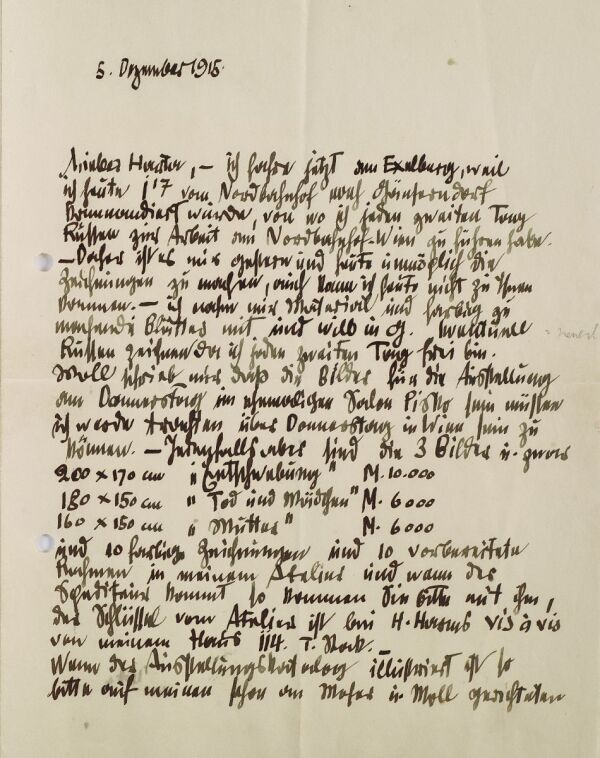 5. Dezember 1915.
Lieber Hauer, – ich fahre jetzt am Exelberg, weil
ich heute 1/2 7 vom Nordbahnhof nach Gänserndorf
kommandiert wurde, von wo ich jeden zweiten Tag
Russen zur Arbeit am Nordbahnhof-Wien zu führen habe.
– Daher ist es mir gestern und heute unmöglich die
Zeichnungen zu machen, auch kann ich heute nicht zu Ihnen
kommen. – ich nahm mir Material und farbig zu
machende Blätter mit und will in G. eventuell
Russen zeichnen da ich jeden zweiten Tag frei bin.
Moll schrieb mir daß die Bilder für die Ausstellung
am Donnerstag im ehemaligen Salon Pisko sein müssen
ich werde trachten über Donnerstag in Wien sein zu
können. – Jedenfalls aber sind die 3 Bilder u. zwar
200 x 170 cm "Entschwebung" M. 10.000
180 x 150 cm "Tod und Mädchen" M. 6000
160 x 150 cm "Mutter" M. 6000
und 10 farbige Zeichnungen und 10 vorbereitete
Rahmen in meinem Atelier und wann der
Spediteur kommt so kommen Sie bitte mit ihm,
der Schlüssel vom Atelier ist bei H. Harms vis à vis
von meinem Haus 114. T. Stock.
Wenn der Ausstellungskatalog illustriert ist so
bitte auf meinen schon an Moser u. Moll gerichteten